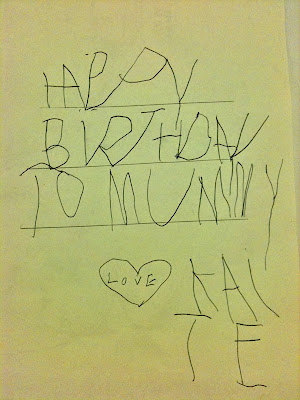 HAPPY
BIRTHDAY
TO MUMMY
LOVE KAI
TE